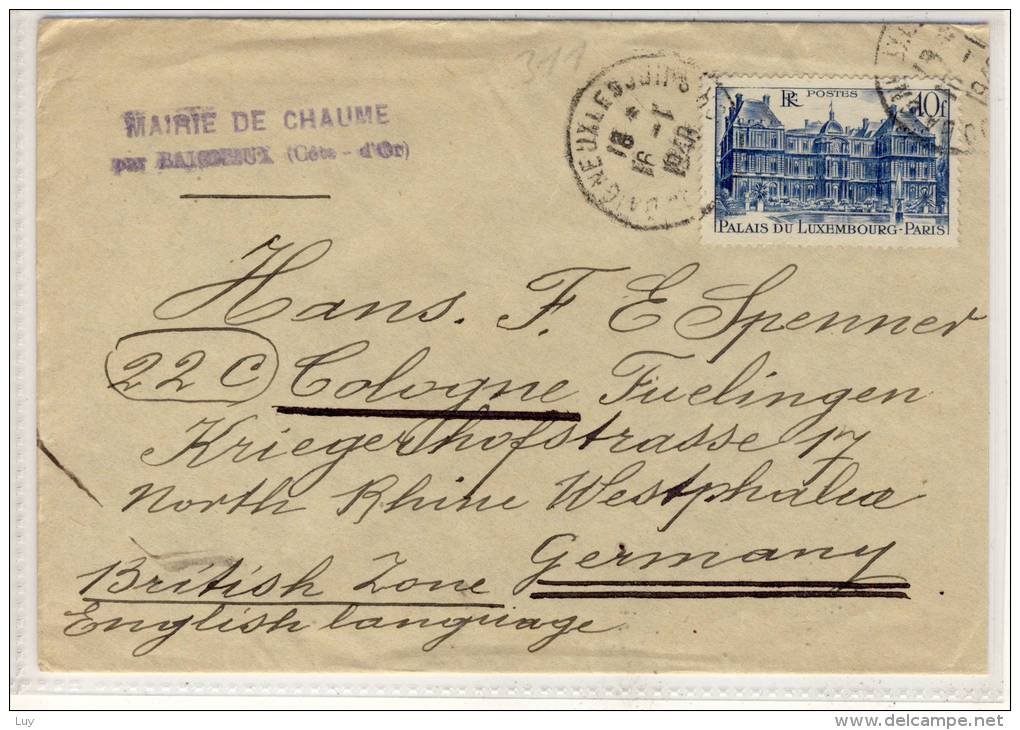 311
MAIRIE DE CHAUME
par BAIGNEUX (Côte-d'Or)
BAIGNEUX LES JUIFS
RF POSTES 10f
PALAIS DU LUXEMBOURG-PARIS
Hans. F. E Spenner
22C Cologne Fuelingen
Kriegerhofstrasse 17
North Rhine Westphalia
Germany
British Zone
English language
Luy
delcampe.net